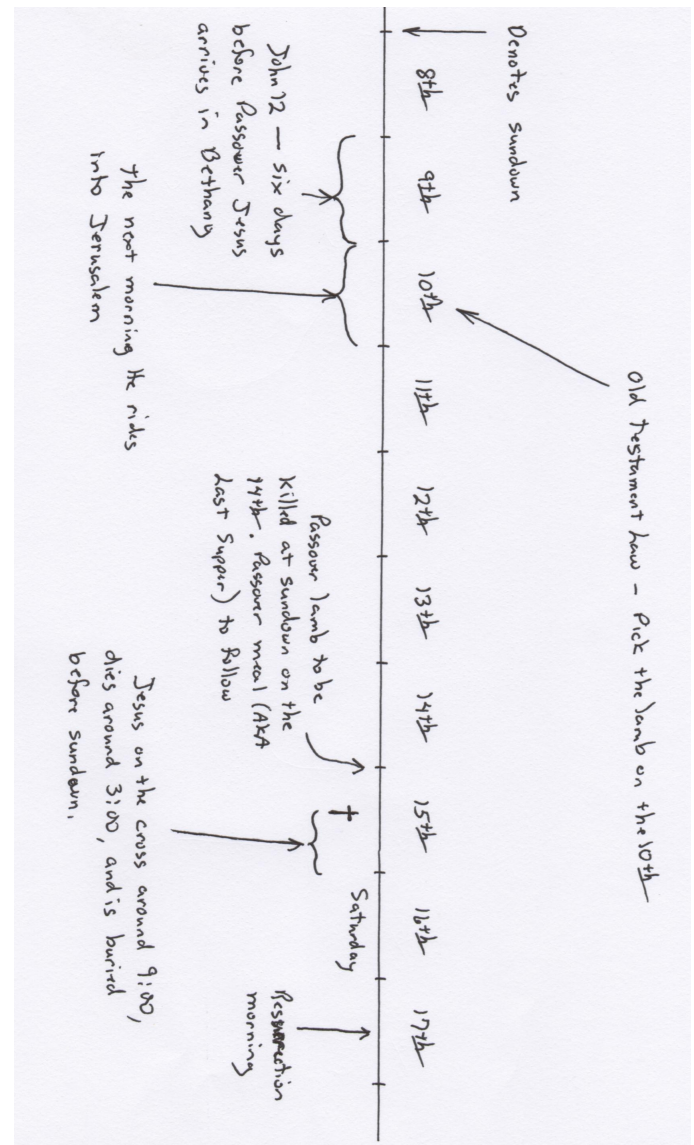 Old Testament Law - Pick the lamb on the 10th
Denotes sundown
8th
9th
10th
11th
12th
13th
14th
15th
16th
17th
John 12 — six days
before Passover Jesus
arrives in Bethany
The next morning He rides
into Jerusalem
Passover lamb to be
killed at sundown on the
14th. Passover meal (AKA
Last Supper) to follow
Jesus on the cross around 9:00,
dies around 3:00, and is buried
before sundown.
Saturday
Resurrection
morning